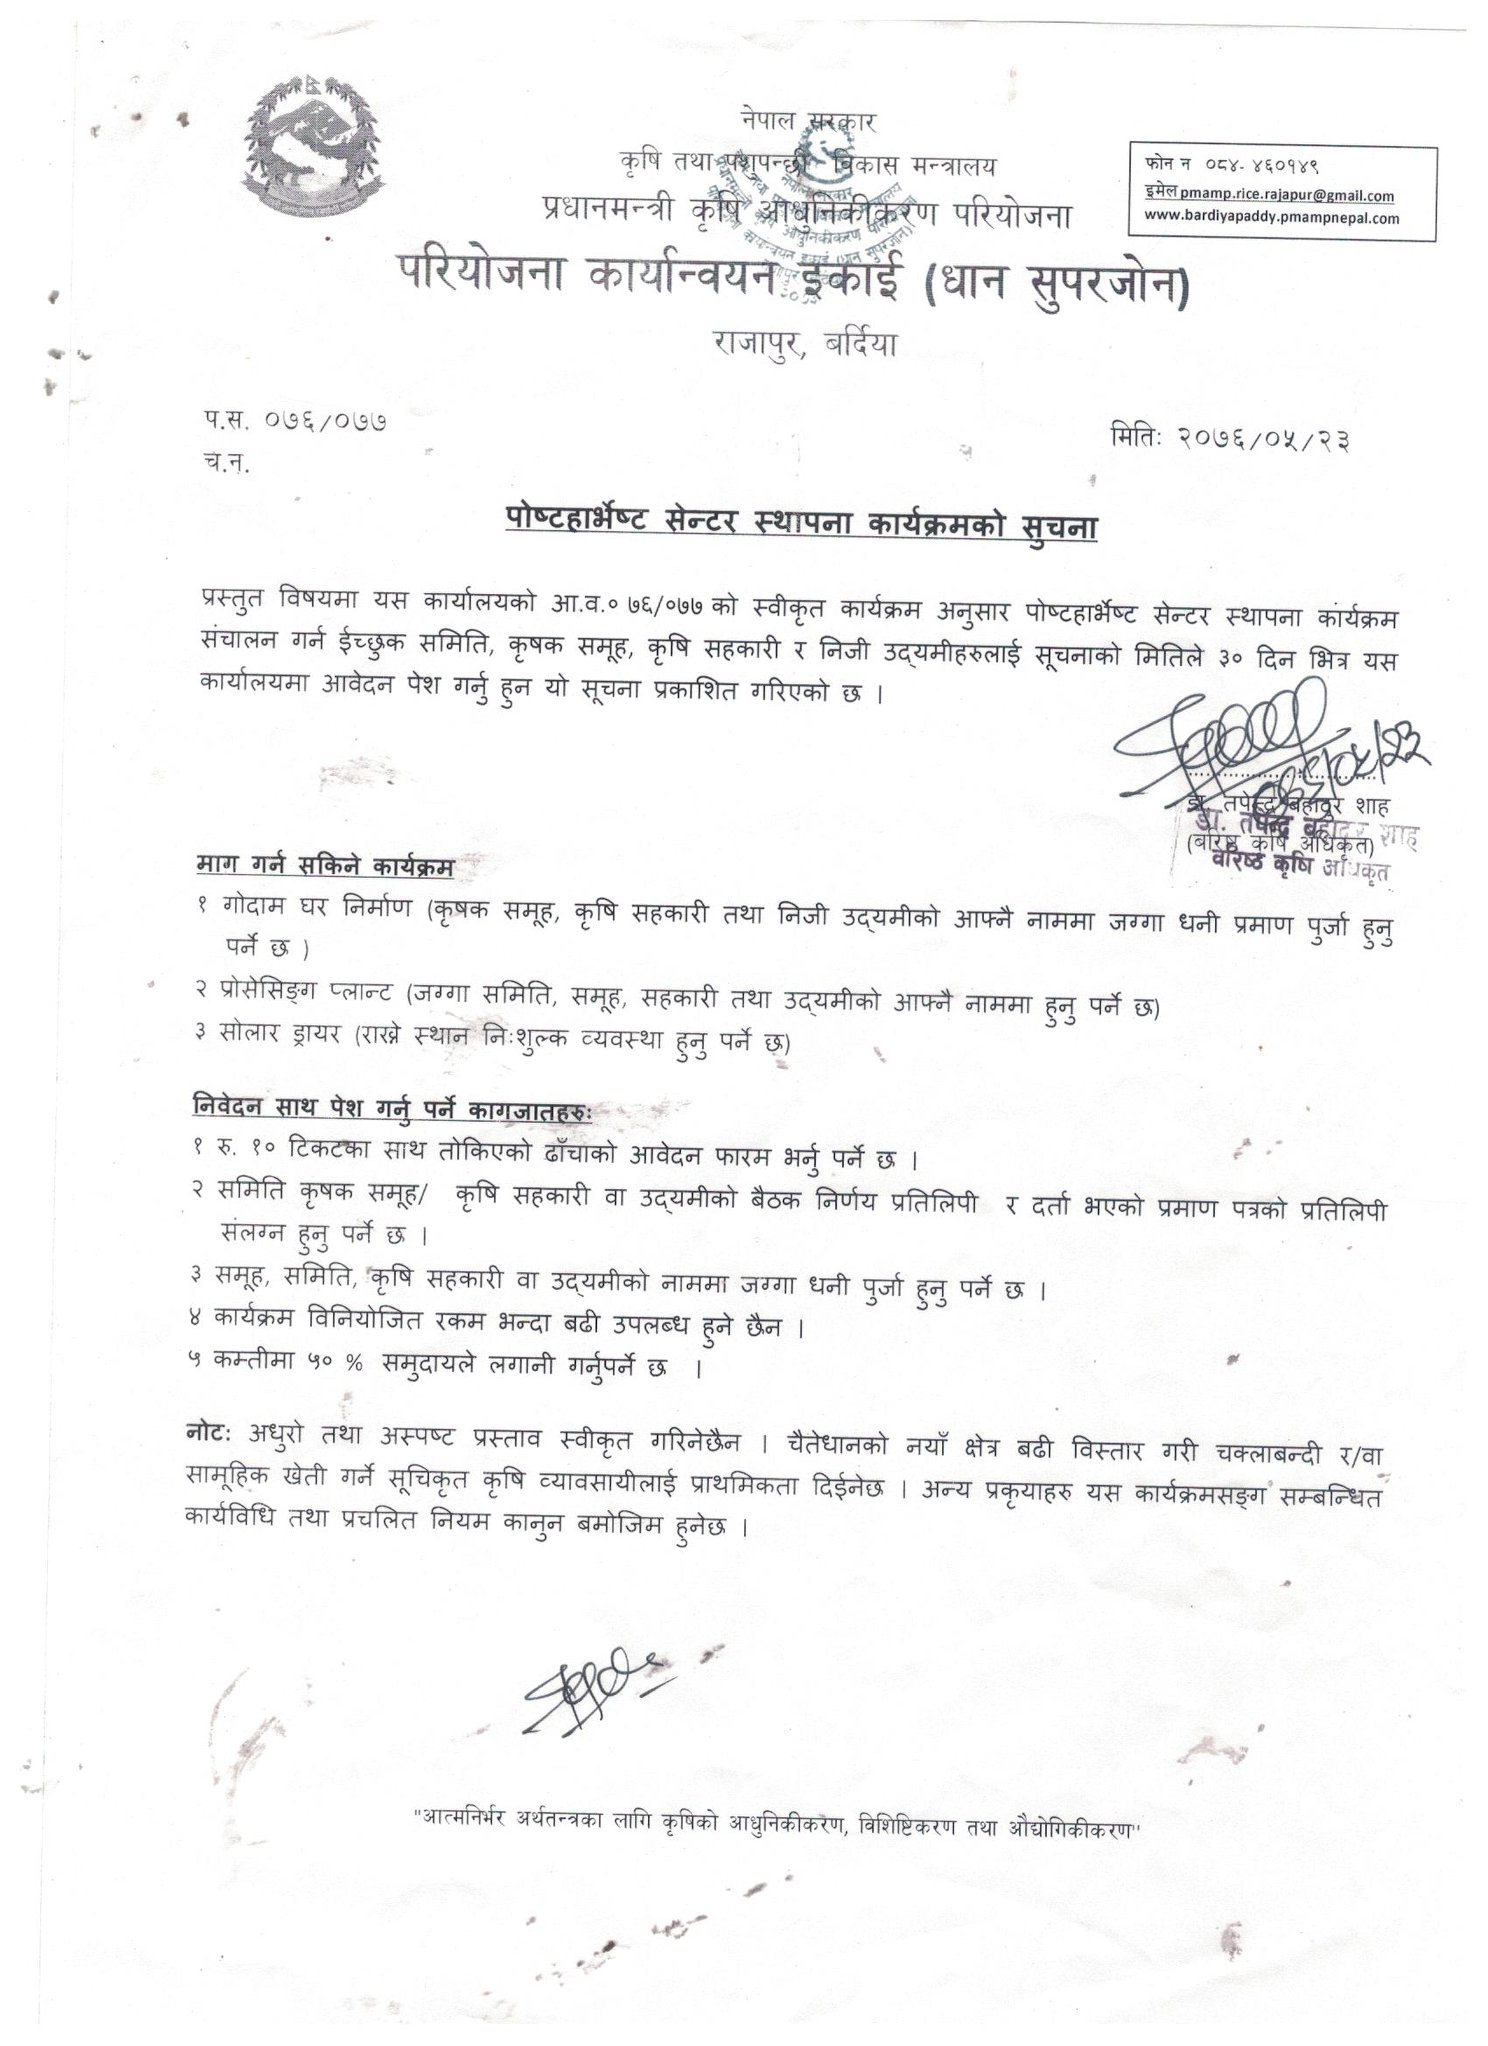 नेपाल सरकार
कृषि तथा पशुपन्छी विकास मन्त्रालय
प्रधानमन्त्री कृषि आधुनिकीकरण परियोजना
परियोजना कार्यान्वयन इकाई (धान सुपरजोन)
राजापुर, बर्दिया
फोन न ०८४- ४६०१४९
इमेल pmamp.rice.rajapur@gmail.com
www.bardiyapaddy.pmampnepal.com
प.स. ०७६/०७७
मितिः २०७६/०५/२३
च.न.
पोष्टहार्भेष्ट सेन्टर स्थापना कार्यक्रमको सुचना
प्रस्तुत विषयमा यस कार्यालयको आ.व.० ७६/०७७ को स्वीकृत कार्यक्रम अनुसार पोष्टहार्भेष्ट सेन्टर स्थापना कार्यक्रम
संचालन गर्न ईच्छुक समिति, कृषक समूह, कृषि सहकारी र निजी उद्‌यमीहरुलाई सूचनाको मितिले ३० दिन भित्र यस
कार्यालयमा आवेदन पेश गर्नु हुन यो सूचना प्रकाशित गरिएको छ ।
डा. तपेन्द्र बहादुर शाह
डा. तपेन्द्र बहादुर शाह
(बरिष्ठ कृषि अधिकृत)
वरिष्ठ कृषि अधिकृत
माग गर्न सकिने कार्यक्रम
१ गोदाम घर निर्माण (कृषक समूह, कृषि सहकारी तथा निजी उद्‌यमीको आफ्नै नाममा जग्गा धनी प्रमाण पुर्जा हुनु
पर्ने छ )
२ प्रोसेसिङ्ग प्लान्ट (जग्गा समिति, समूह, सहकारी तथा उद्‌यमीको आफ्नै नाममा हुनु पर्ने छ)
३ सोलार ड्रायर (राख्ने स्थान निःशुल्क व्यवस्था हुनु पर्ने छ)
निवेदन साथ पेश गर्नु पर्ने कागजातहरुः
१ रु. १० टिकटका साथ तोकिएको ढाँचाको आवेदन फारम भर्नु पर्ने छ ।
२ समिति कृषक समूह/ कृषि सहकारी वा उद्‌यमीको बैठक निर्णय प्रतिलिपी र दर्ता भएको प्रमाण पत्रको प्रतिलिपी
संलग्न हुनु पर्ने छ ।
३ समूह, समिति, कृषि सहकारी वा उद्‌यमीको नाममा जग्गा धनी पुर्जा हुनु पर्ने छ ।
४ कार्यक्रम विनियोजित रकम भन्दा बढी उपलब्ध हुने छैन ।
५ कम्तीमा ५० % समुदायले लगानी गर्नुपर्ने छ ।
नोटः अधुरो तथा अस्पष्ट प्रस्ताव स्वीकृत गरिनेछैन । चैतेधानको नयाँ क्षेत्र बढी विस्तार गरी चक्लाबन्दी र/वा
सामूहिक खेती गर्ने सूचिकृत कृषि व्यावसायीलाई प्राथमिकता दिईनेछ । अन्य प्रकृयाहरु यस कार्यक्रमसङ्ग सम्बन्धित
कार्यविधि तथा प्रचलित नियम कानुन बमोजिम हुनेछ ।
"आत्मनिर्भर अर्थतन्त्रका लागि कृषिको आधुनिकीकरण, विशिष्टिकरण तथा औद्योगिकीकरण"